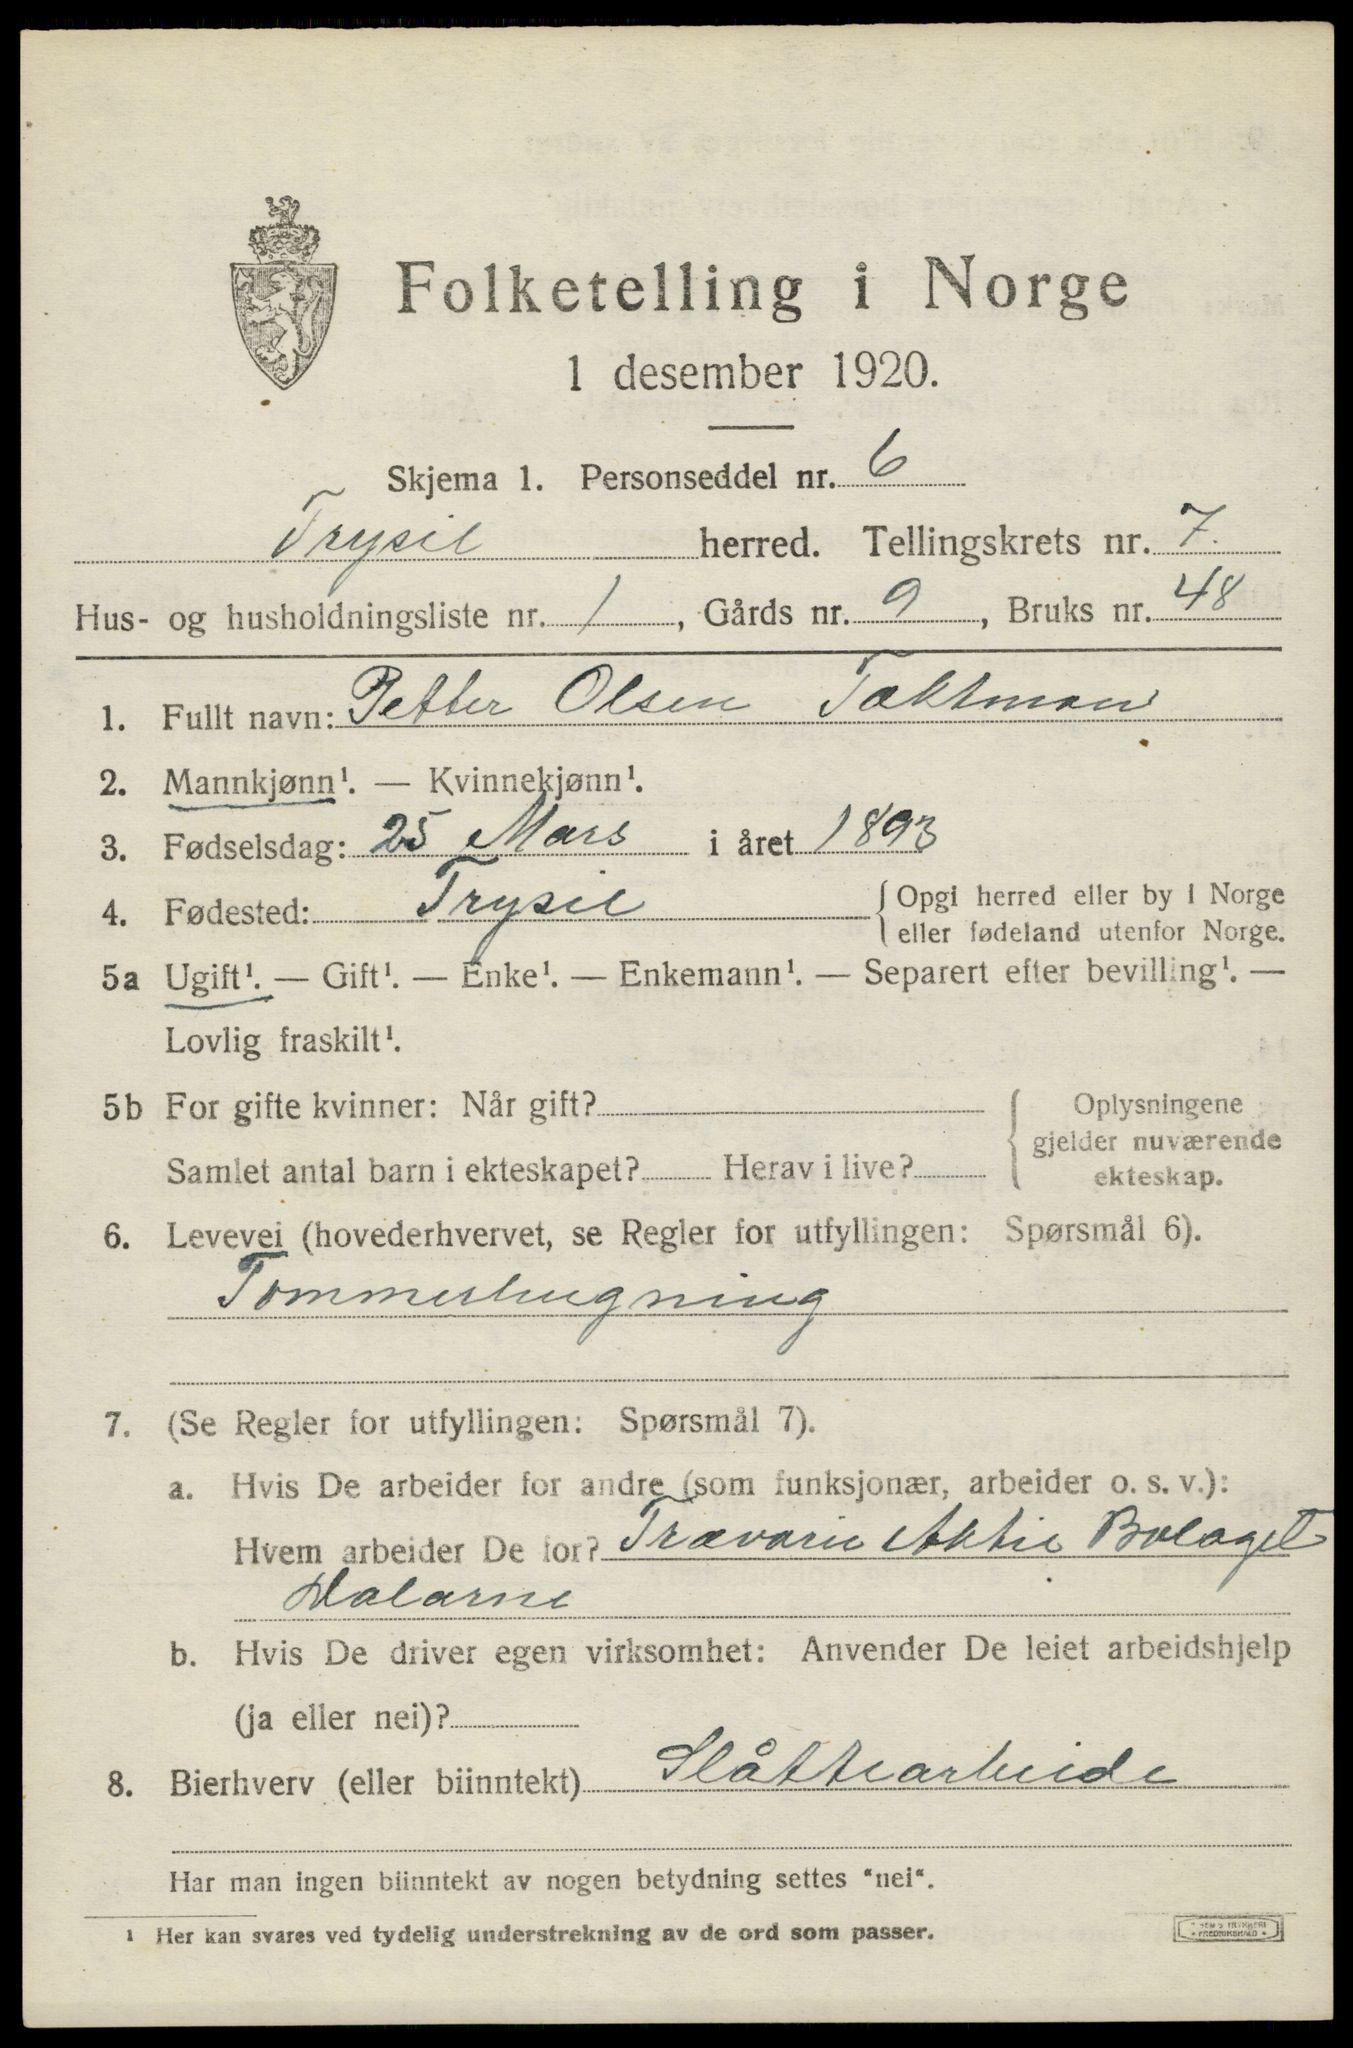 Folketelling i Norge
1 desember 1920.
Skjema 1. Personseddel nr. 6
Trysil herred. Tellingskrets nr. 7.
Hus- og husholdningsliste nr. 1, Gårds nr. 9, Bruks nr. 48
1. Fullt navn: Petter Olsen Taktman
2. Mannkjønn¹. — Kvinnekjønn¹.
3. Fødselsdag: 25 Mars i året 1893
4. Fødested: Trysil { Opgi herred eller by i Norge
eller fødeland utenfor Norge.
5a Ugift¹. — Gift¹. — Enke¹. — Enkemann¹. — Separert efter bevilling¹. —
Lovlig fraskilt¹.
5b For gifte kvinner: Når gift? { Oplysningene
gjelder nuværende
Samlet antal barn i ekteskapet? Herav i live? ekteskap.
6. Levevei (hovederhvervet, se Regler for utfyllingen: Spørsmål 6).
Tømmerhugning
7. (Se Regler for utfyllingen: Spørsmål 7).
a. Hvis De arbeider for andre (som funksjonær, arbeider o. s. v.):
Hvem arbeider De for? Travarie Aktie Bolaget
Dalarne
b. Hvis De driver egen virksomhet: Anvender De leiet arbeidshjelp
(ja eller nei)?
8. Bierhverv (eller biinntekt) Slåttearbeide
Har man ingen biinntekt av nogen betydning settes "nei".
¹ Her kan svares ved tydelig understrekning av de ord som passer.